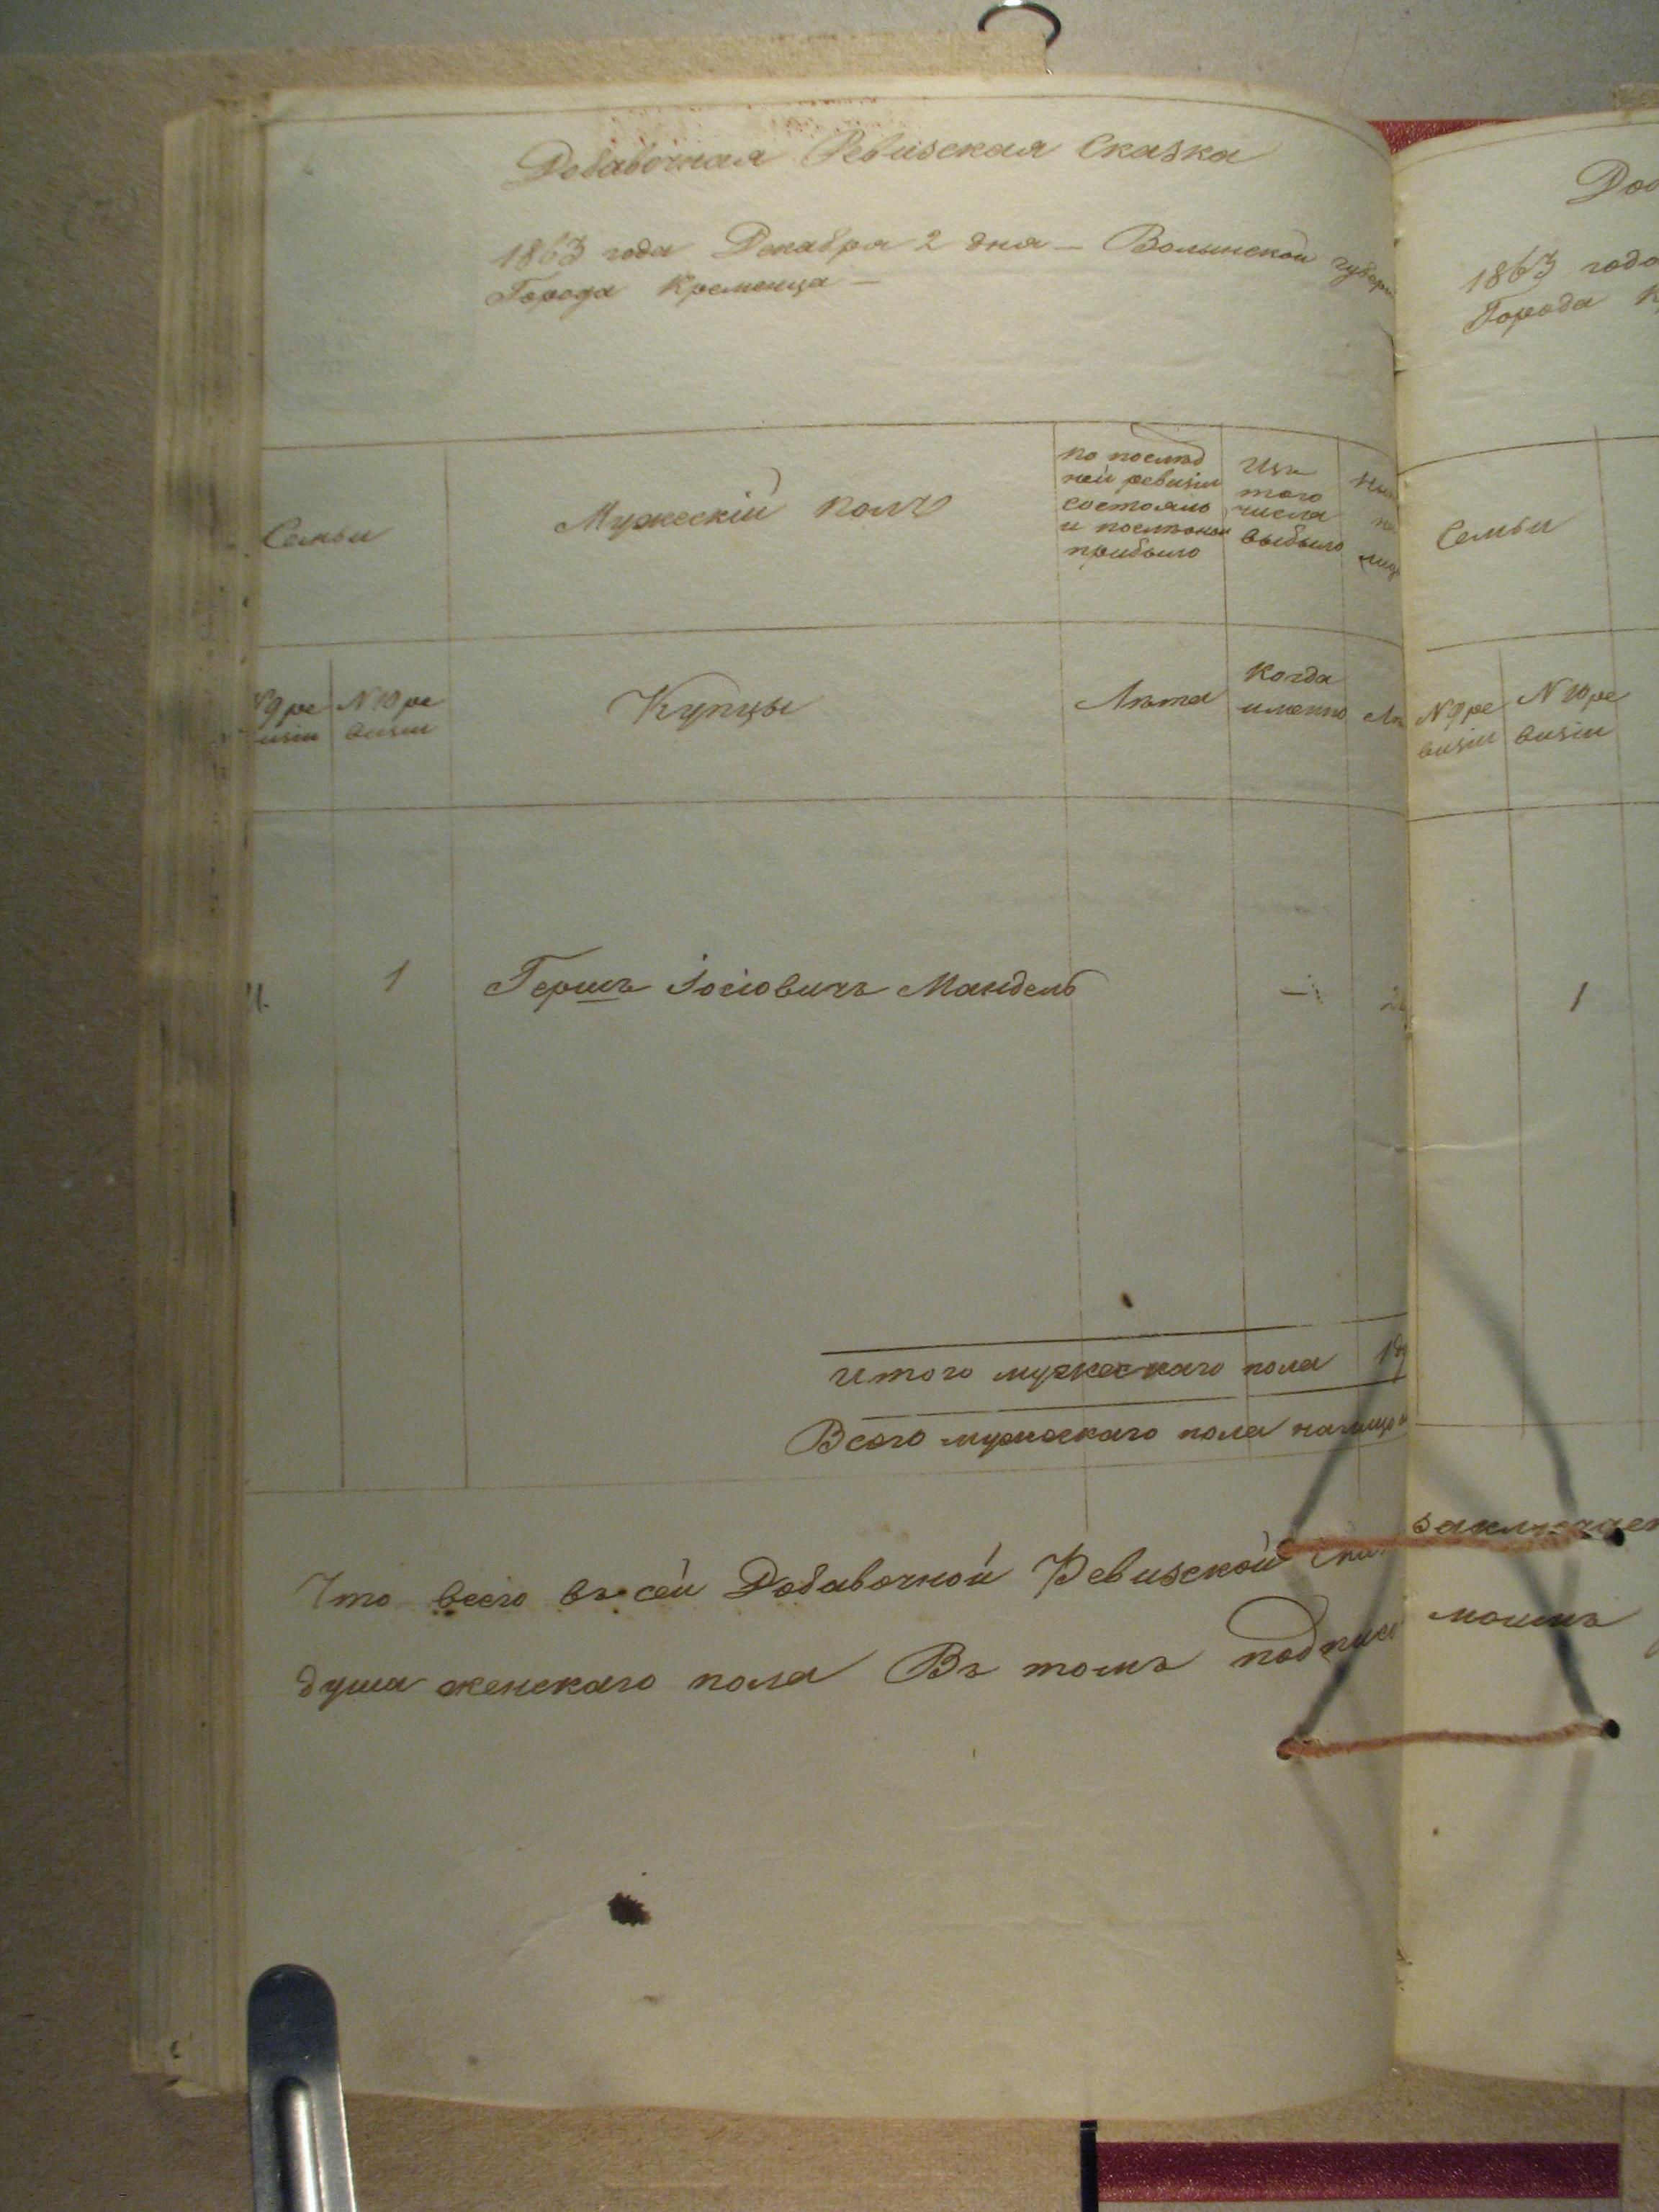 Добавочная Ревизская Сказка
1863 года Декабря 2 дня — Волынской
Города Кременца —
Семьи
Мужескій полъ
по послѣд
ней ревизіи
состояло
и послѣ онои
прибыло
Изъ
того
числа
выбыло
N 9 ре
визіи
N 10 ре
визіи
Купцы
Лѣта
Когда
именно
1
Гершъ Іосіовичъ Мандель
—
Итого мужескаго пола 1
Всего мужескаго пола налицо
Что всего въ сей Добавочной Ревизской
душа женскаго пола Въ томъ подписо
1863 года
Города
Семьи
N 9 ре
визіи
N 10 ре
визіи
1
моимъ